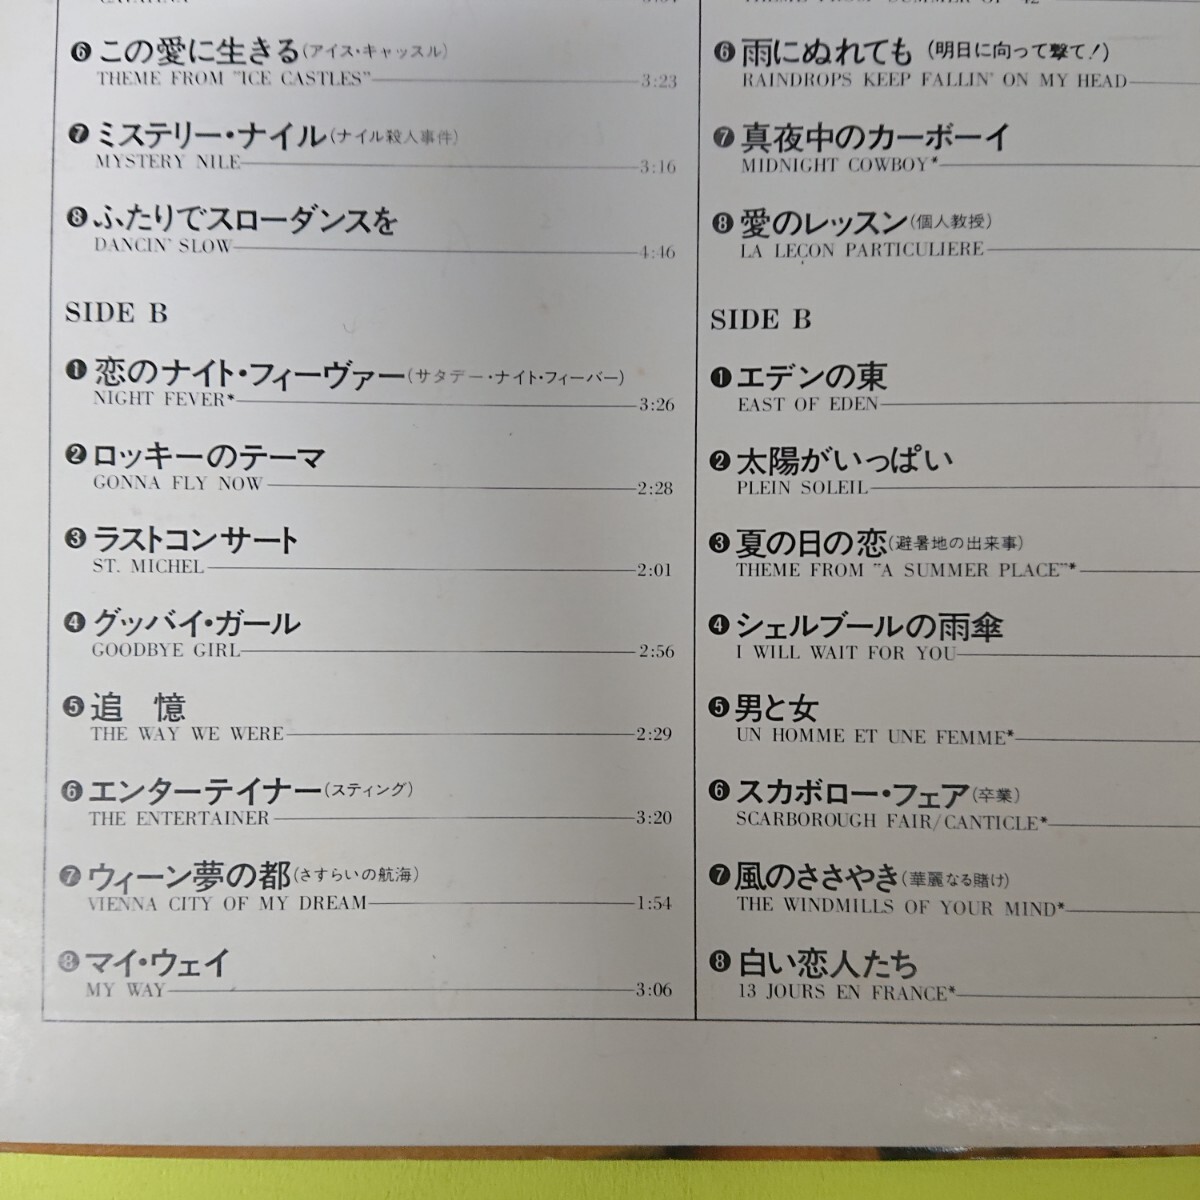 CAVATINA
❻この愛に生きる(アイス・キャッスル)
THEME FROM "ICE CASTLES" 3:23
❼ミステリー・ナイル(ナイル殺人事件)
MYSTERY NILE 3:16
❽ふたりでスローダンスを
DANCIN' SLOW 4:46
SIDE B
❶恋のナイト・フィーヴァー(サタデー・ナイト・フィーバー)
NIGHT FEVER* 3:26
❷ロッキーのテーマ
GONNA FLY NOW 2:28
❸ラストコンサート
ST. MICHEL 2:01
❹グッバイ・ガール
GOODBYE GIRL 2:56
❺追 憶
THE WAY WE WERE 2:29
❻エンターテイナー(スティング)
THE ENTERTAINER 3:20
❼ウィーン夢の都(さすらいの航海)
VIENNA CITY OF MY DREAM 1:54
❽マイ・ウェイ
MY WAY 3:06
THEME FROM "SUMMER OF '42"
❻雨にぬれても(明日に向って撃て!)
RAINDROPS KEEP FALLIN' ON MY HEAD
❼真夜中のカーボーイ
MIDNIGHT COWBOY*
❽愛のレッスン(個人教授)
LA LEÇON PARTICULIERE
SIDE B
❶エデンの東
EAST OF EDEN
❷太陽がいっぱい
PLEIN SOLEIL
❸夏の日の恋(避暑地の出来事)
THEME FROM "A SUMMER PLACE"*
❹シェルブールの雨傘
I WILL WAIT FOR YOU
❺男と女
UN HOMME ET UNE FEMME*
❻スカボロー・フェア(卒業)
SCARBOROUGH FAIR/CANTICLE*
❼風のささやき(華麗なる賭け)
THE WINDMILLS OF YOUR MIND*
❽白い恋人たち
13 JOURS EN FRANCE*